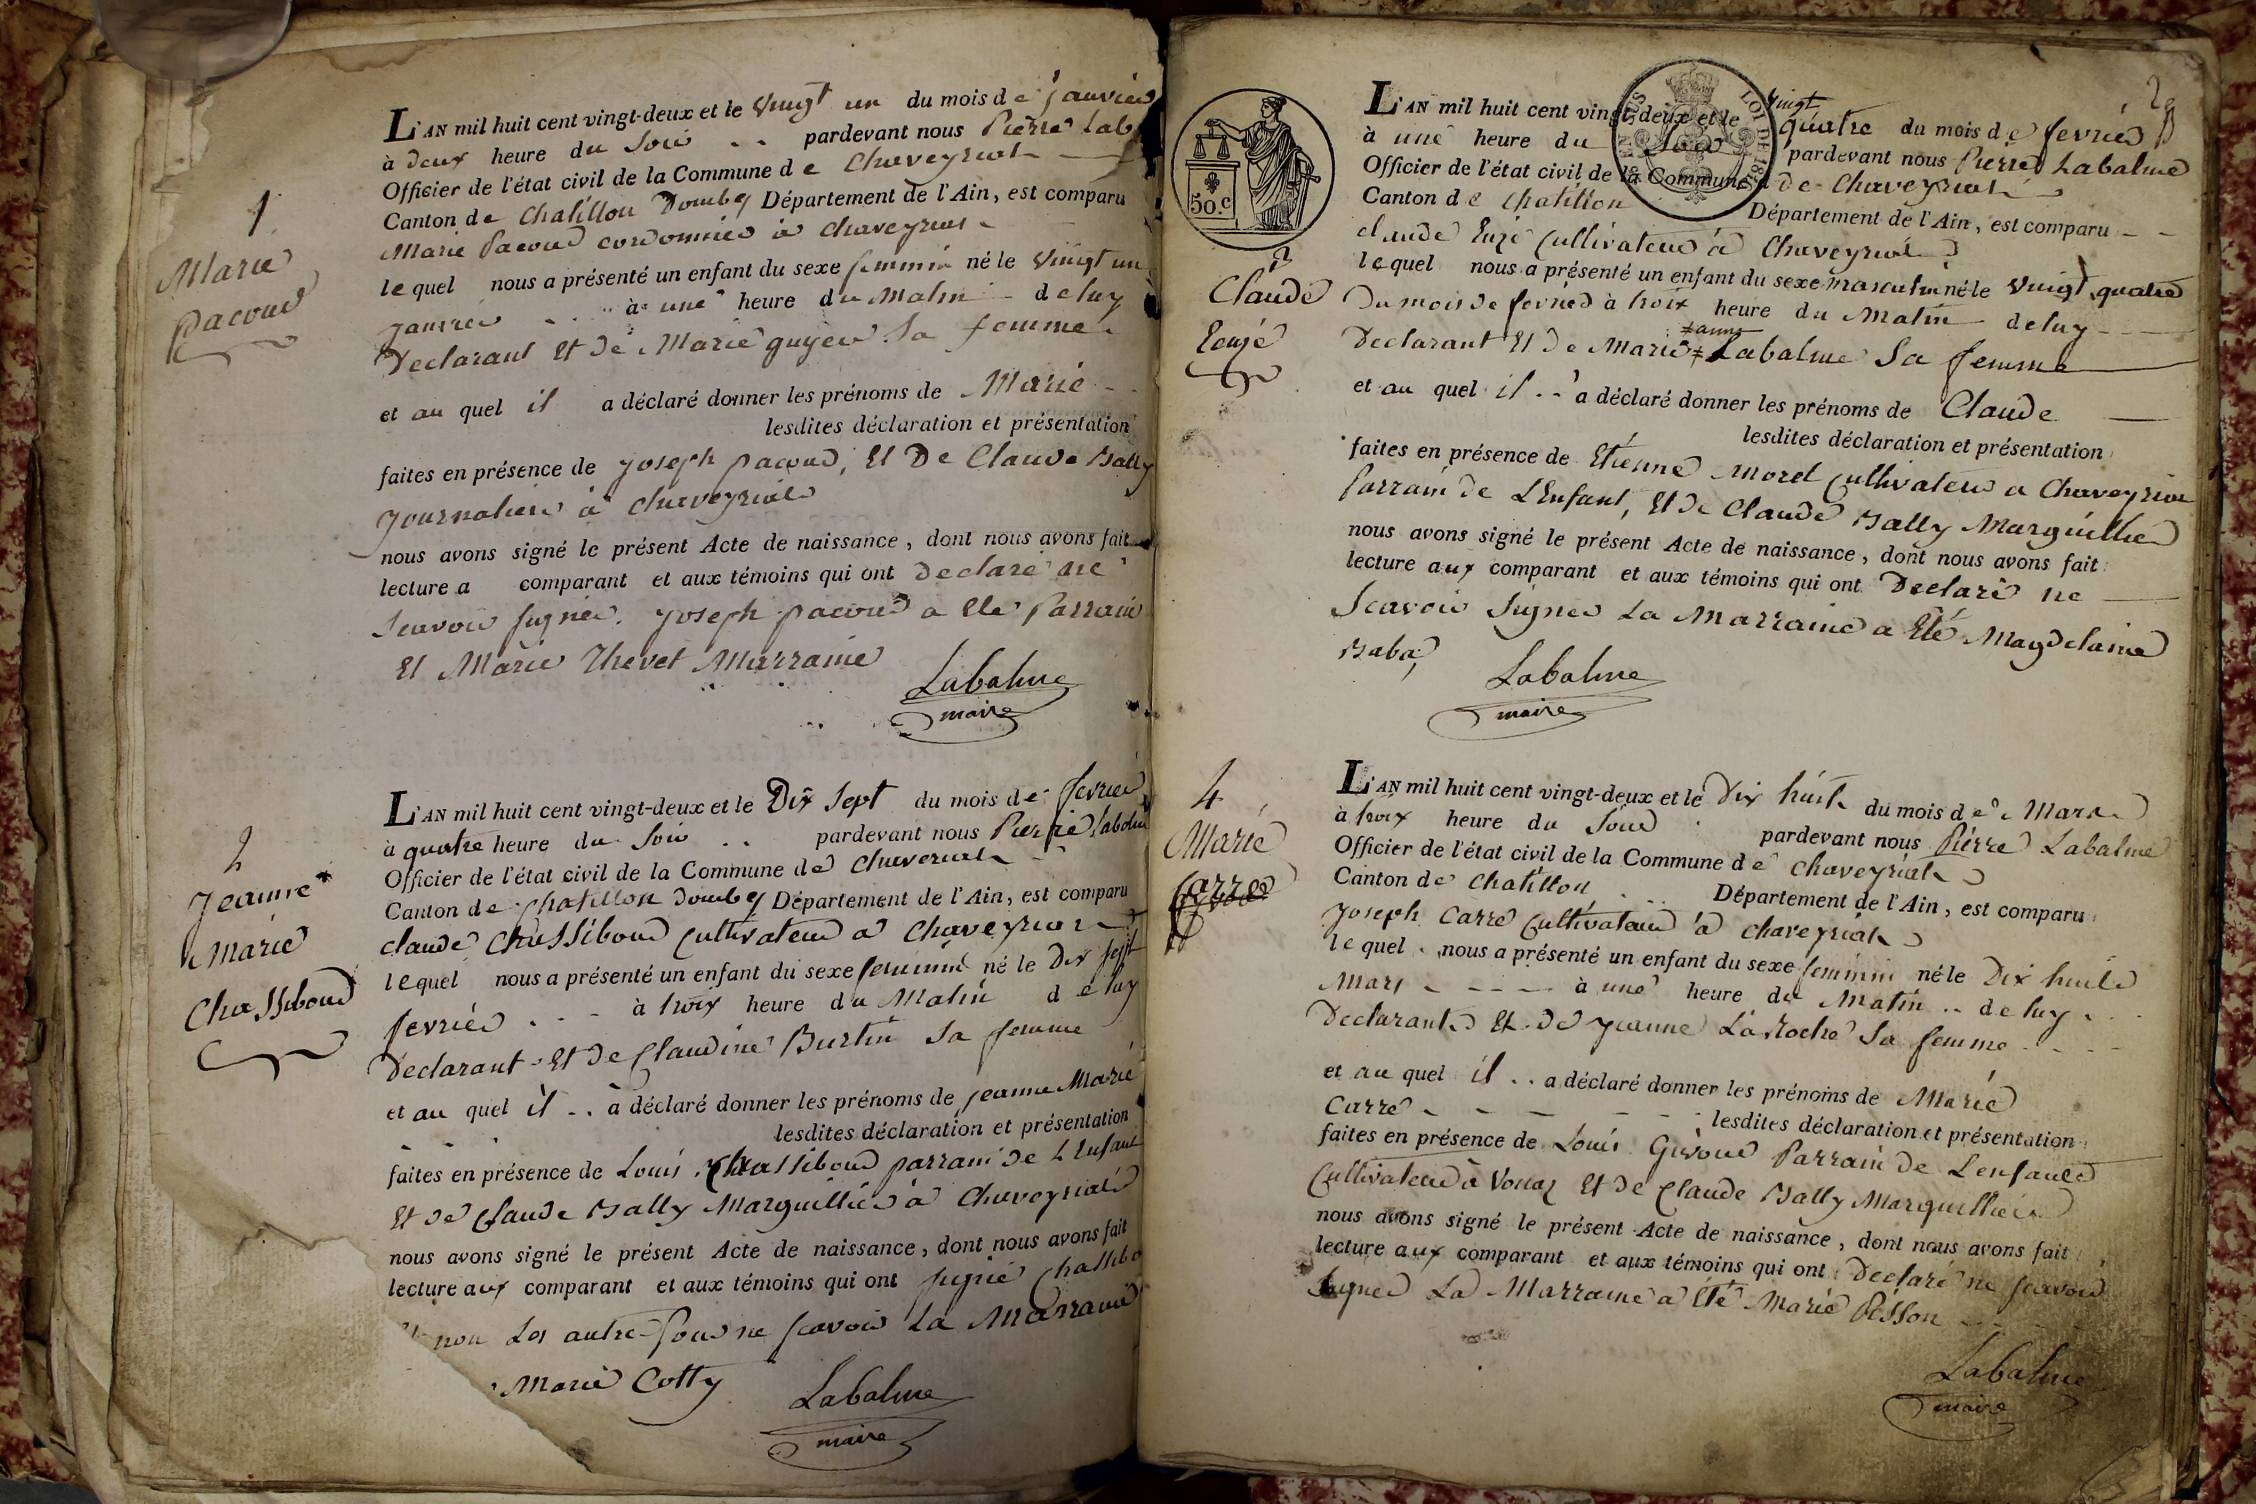 1
Marie
Pacoud
L'AN mil huit cent vingt-deux et le Vingt un du mois de janvier
à deux heure du Soir pardevant nous Pierre Lab
Officier de l'état civil de la Commune de Chaveyriat
Canton de Chatillon Dombes Département de l'Ain, est comparu
Marie Pacoud cordonnier à Chaveyriat
lequel nous a présenté un enfant du sexe feminin né le Vingt un
janvier à une heure du Matin de luy
Declarant Et de Marie guyer Sa femme
et au quel il a déclaré donner les prénoms de Marie
lesdites déclaration et présentation
faites en présence de Joseph pacoud, Et De Claude Bally
Journalier à Chaveyriat
nous avons signé le présent Acte de naissance, dont nous avons fait
lecture a comparant et aux témoins qui ont declaré ne
Scavoir signer. Joseph pacoud a Eté Parrain
Et Marie Thevet Marraine
Labalme
maire
2
Jeanne
Marie
Chassiboud
L'AN mil huit cent vingt-deux et le Dix Sept du mois de fevrier
à quatre heure du Soir pardevant nous Pierre Labalme
Officier de l'état civil de la Commune de Chaveriat
Canton de Chatillon Dombes Département de l'Ain, est comparu
Claude Chassiboud Cultivateur à Chaveyriat
lequel nous a présenté un enfant du sexe feminin né le Dix sept
fevrier à troix heure du Matin de luy
Declarant Et de Claudine Burtin Sa femme
et au quel il a déclaré donner les prénoms de jeanne Marie
lesdites déclaration et présentation
faites en présence de Louis Chassiboud parrain de L Enfant
Et de Claude Bally Marguillier à Chaveyriat
nous avons signé le présent Acte de naissance, dont nous avons fait
lecture aux comparant et aux témoins qui ont signé Chassibo
non Les autre pour ne scavoir La Marraine
Marie Cotty
Labalme
maire
50.c
LOI DE
3
Claude
Eugé
L'AN mil huit cent vingt-deux et le vingt quatre du mois de fevrier
à une heure du Soir pardevant nous Pierre Labalme
Officier de l'état civil de la Commune de Chaveyriat
Canton de Chatillon Département de l'Ain, est comparu
claude Eugé Cultivateur à Chaveyriat
lequel nous a présenté un enfant du sexe masculin né le Vingt quatre
Du mois de fevrier à troix heure du Matin de luy
Declarant Et de Marie ‡ anne Labalme Sa femme
et au quel il a déclaré donner les prénoms de Claude
lesdites déclaration et présentation
faites en présence de Etienne Morel Cultivateur a Chaveyriat
Parrain de L'Enfant, Et de Claude Bally Marguillier
nous avons signé le présent Acte de naissance, dont nous avons fait
lecture aux comparant et aux témoins qui ont Declaré ne
Scavoir Signer La Marraine a Eté Magdelaine
Baba,
Labalme
maire
4
Marie
Carré
L'AN mil huit cent vingt-deux et le Dix huit du mois de Mars
à troix heure du Soir pardevant nous Pierre Labalme
Officier de l'état civil de la Commune de Chaveyriat
Canton de Chatillon Département de l'Ain, est comparu
Joseph Carré Cultivateur à chaveyriat
lequel nous a présenté un enfant du sexe feminin né le Dix huit
Mars à une heure du Matin de luy
Declarant Et de Jeanne La Roche Sa femme
et au quel il a déclaré donner les prénoms de Marie
Carré lesdites déclaration et présentation
faites en présence de Louis Givoud Parrain de L'enfant
Cultivateur à Vonnaz Et de Claude Bally Marguillier
nous avons signé le présent Acte de naissance, dont nous avons fait
lecture aux comparant et aux témoins qui ont Declaré ne scavoir
Signer La Marraine a Eté Marie Pesson
Labalme
maire